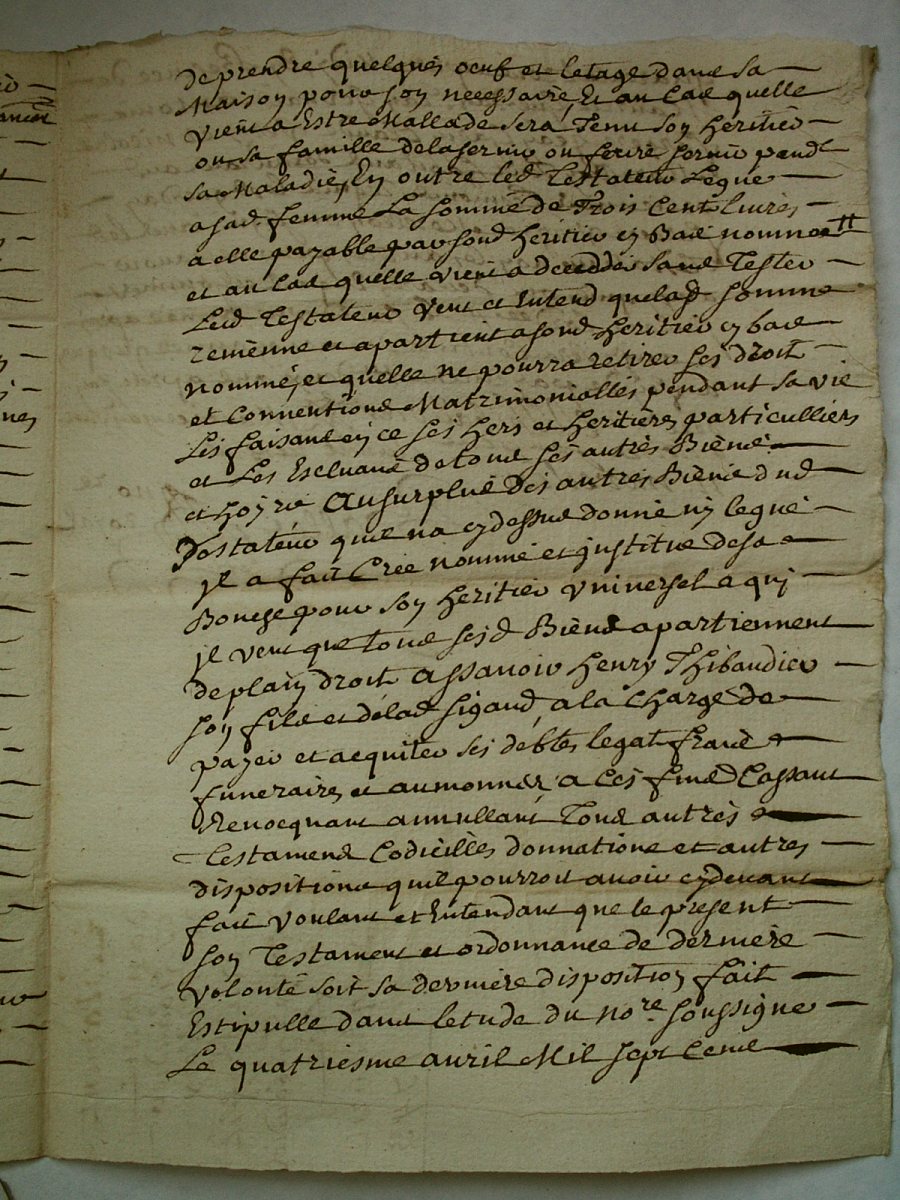 de prendre quelques oeuf et letage dans sa
Maison pour son necessaire, Et au Cas quelle
vient a Estre Mallade sera Tenu son heritier
ou sa famille de la servir ou feire servir pendt
sa Maladie, En outre led Testateur Legue
a sad femme La somme de Trois Cent Livres
a elle payable par sond heritier cy Bas nommé
et au Cas quelle vient a deceddes sans Tester
Led Testateur veut et Entend que lad somme
revienne et apartient a sond heritier cy bas
nommé, et quelle ne pourra retirer ses droit
et Conventions Matrimonialles pendant sa vie
Les faisant en ce ses hers et heritiers particulliers
et Les Escluant de tous ses autres Biens
et hoyrie Au surplus des autres Biens dud
Testateur quil na cy dessus donné ny legué
Jl a fait Creé nommé et jnstitue de sa
Bouche pour son heritier vniversel a qui
jl veut que tous sesd Biens apartiennent
de plain droit Assavoir henry Thibaudier
son fils et de lad sigaud, a la charge de
payer et acquiter ses debtes legat fraid
funeraires et aumonnes, a Ces fins Cassant
Revocquant annullant Tous autres
testamens Codicilles donnations et autres
dispositions quil pourroit avoir cy devant
fait voulant et Entendant que le present
son Testament et ordonnance de derniere
volonté soit sa derniere disposition fait
Estipulle dans letude du nore soussigne
Le quatriesme avril Mil sept Cens